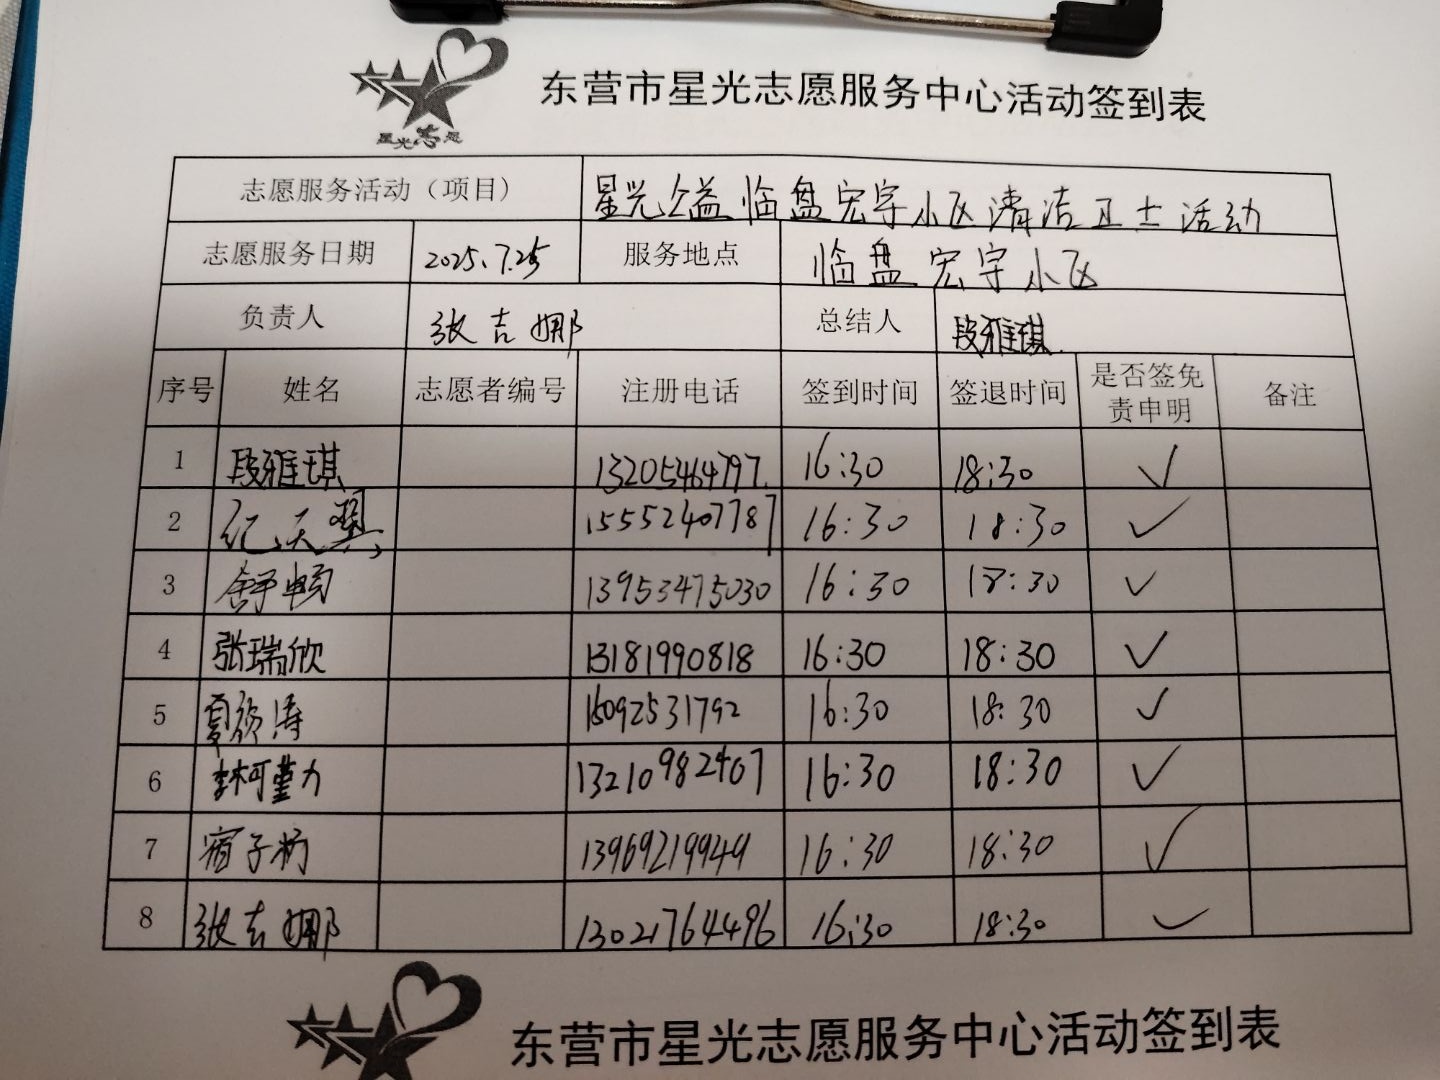 东营市星光志愿服务中心活动签到表
星光志愿
志愿服务活动（项目） 星光公益临盘宏宇小区清洁卫士活动
志愿服务日期 2025.7.25 服务地点 临盘宏宇小区
负责人 张吉娜 总结人 段雅琪
序号 姓名 志愿者编号 注册电话 签到时间 签退时间 是否签免责申明 备注
1 段雅琪 13205464797 16:30 18:30 ✓
2 纪天翼 15552407787 16:30 18:30 ✓
3 舒畅 13953475030 16:30 18:30 ✓
4 张瑞欣 13181990818 16:30 18:30 ✓
5 夏 涛 16092531792 16:30 18:30 ✓
6 13210982407 16:30 18:30 ✓
7 宿子杨 13969219949 16:30 18:30 ✓
8 张吉娜 13021764496 16:30 18:30 ✓
东营市星光志愿服务中心活动签到表